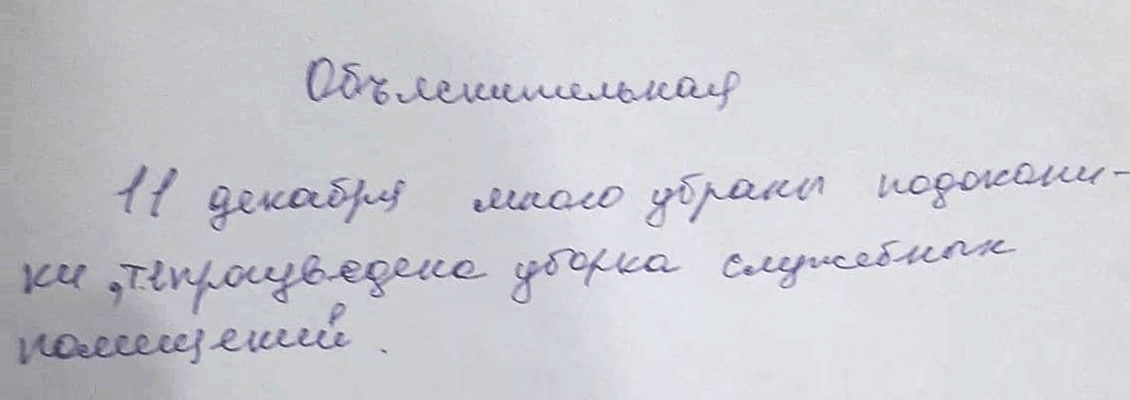 Объяснительная
11 декабря мною убраны подоконни-
ки, т.е произведена уборка служебных
помещений.